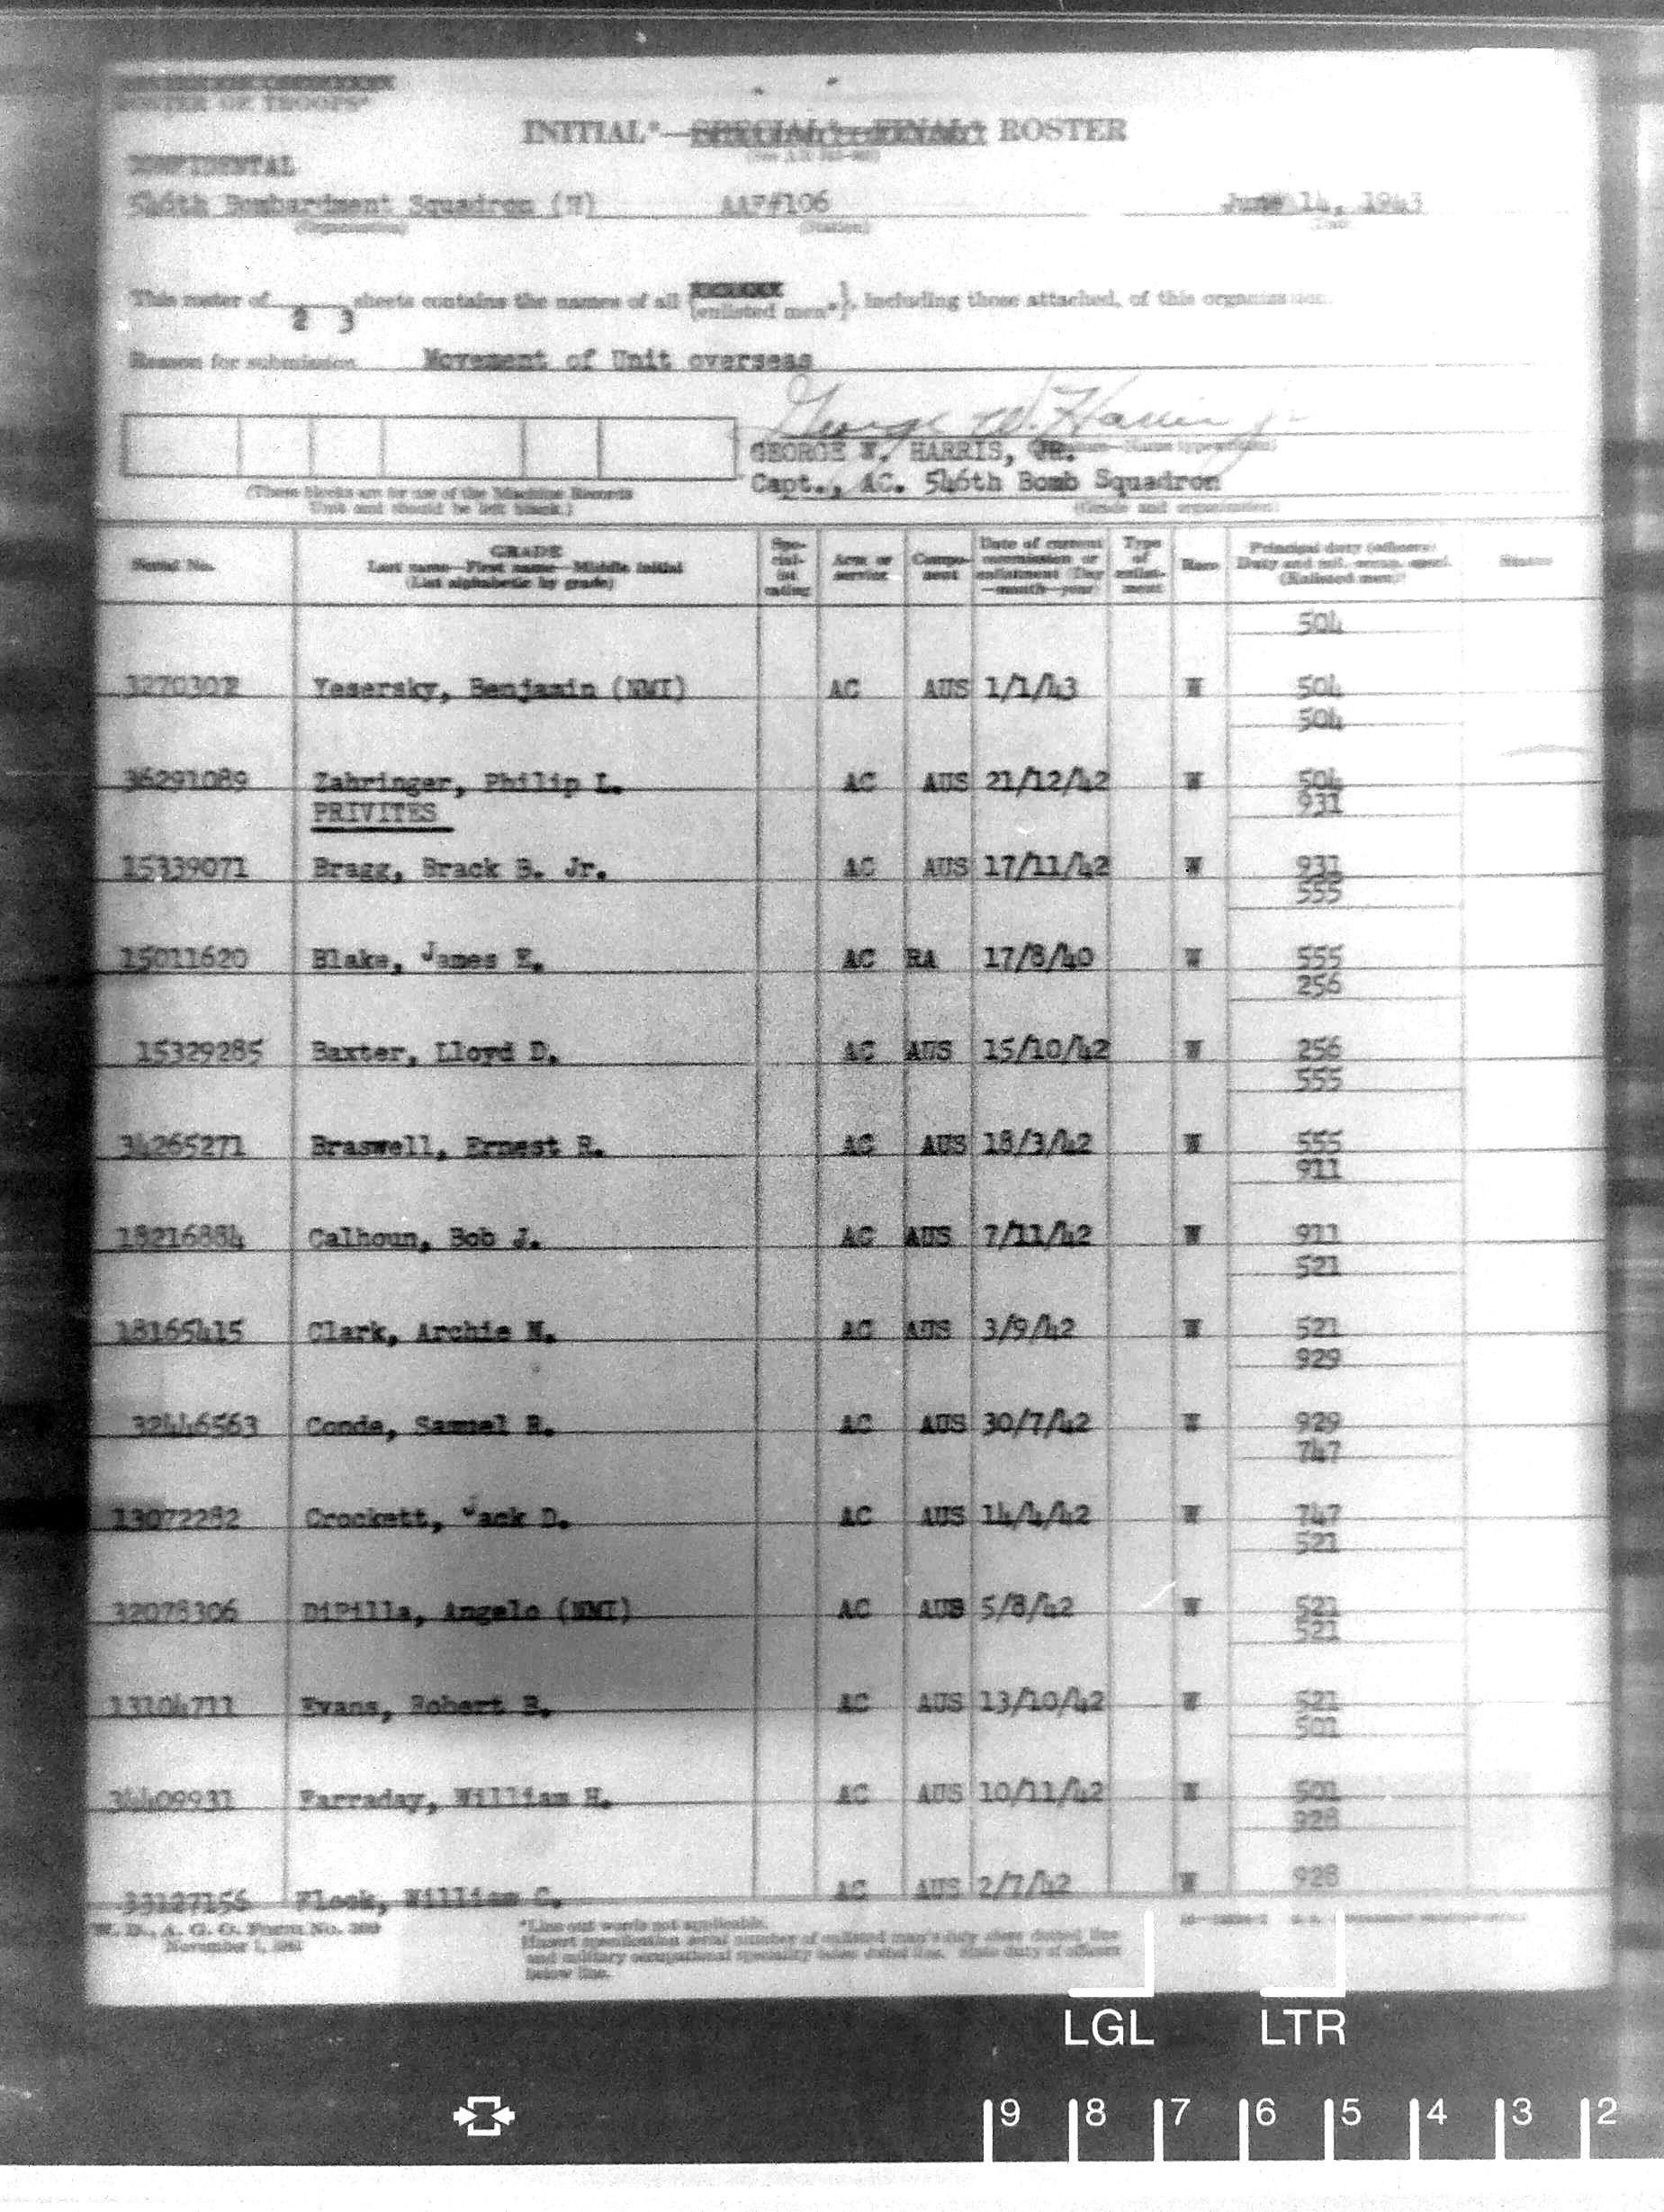 ROSTER OF TROOPS*
INITIAL*—SPECIAL*—FINAL* ROSTER
CONFIDENTAL
546th Bombardment Squadron (H) AAF#106 June 14, 1943
(Organization) (Station) (Date)
This roster of 2 3 sheets contains the names of all {enlisted men*}, including those attached, of this organization.
Reason for submission Movement of Unit overseas
George W. Harris Jr
GEORGE W. HARRIS, JR.
Capt., AC. 546th Bomb Squadron
(These blocks are for use of the Machine Records
Unit and should be left blank.)
(Grade and organization)
Serial No. GRADE Last name—First name—Middle initial (List alphabetic by grade) Special-ist rating Arm or service Compo-nent Date of current commission or enlistment (Day—month—year) Type of enlist-ment Race Principal duty (officers) Duty and mil. occup. spec. (Enlisted men)† Status
504
Yesersky, Benjamin (NMI) AC AUS 1/1/43 W 504
504
36291089 Zahringer, Philip L. AC AUS 21/12/42 W 504
PRIVITES 931
15339071 Bragg, Brack B. Jr. AC AUS 17/11/42 W 931
555
15011620 Blake, James E. AC RA 17/8/40 W 555
256
15329285 Baxter, Lloyd D. AC AUS 15/10/42 W 256
555
34265271 Braswell, Ernest R. AC AUS 18/3/42 W 555
911
18216884 Calhoun, Bob J. AC AUS 7/11/42 W 911
521
18165415 Clark, Archie N. AC AUS 3/9/42 W 521
929
32446563 Conde, Samuel R. AC AUS 30/7/42 W 929
747
13072282 Crockett, Jack D. AC AUS 14/4/42 W 747
521
32078306 DiPilla, Angelo (NMI) AC AUS 5/8/42 W 521
521
13104711 Evans, Robert B. AC AUS 13/10/42 W 521
501
34409931 Farraday, William H. AC AUS 10/11/42 W 501
928
33127156 Flock, William C. AC AUS 2/7/42 W 928
W. D., A. G. O. Form No. 
November 1, 
*Line out words not applicable.
†Insert specification serial number of enlisted man's duty above dotted line
and military occupational specialty below dotted line. State duty of officers
below line.
LGL LTR
9 8 7 6 5 4 3 2